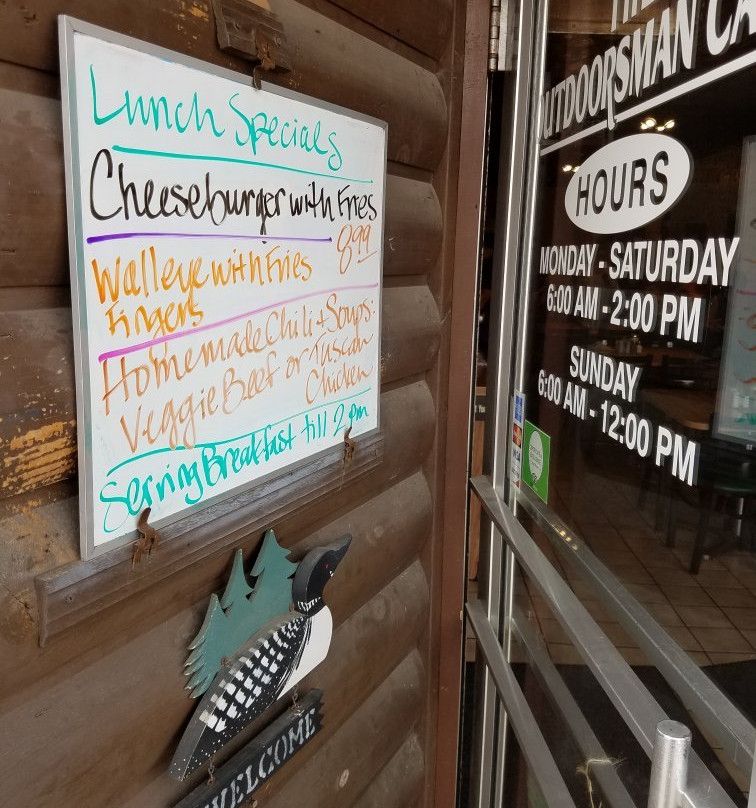 Lunch Specials
Cheeseburger with Fries
8.99
Walleye with Fries
Fingers
Homemade Chili & Soups:
Veggie Beef or Tuscan
Chicken
Serving Breakfast till 2 pm
WELCOME
THE
OUTDOORSMAN CA
HOURS
MONDAY - SATURDAY
6:00 AM - 2:00 PM
SUNDAY
6:00 AM - 12:00 PM